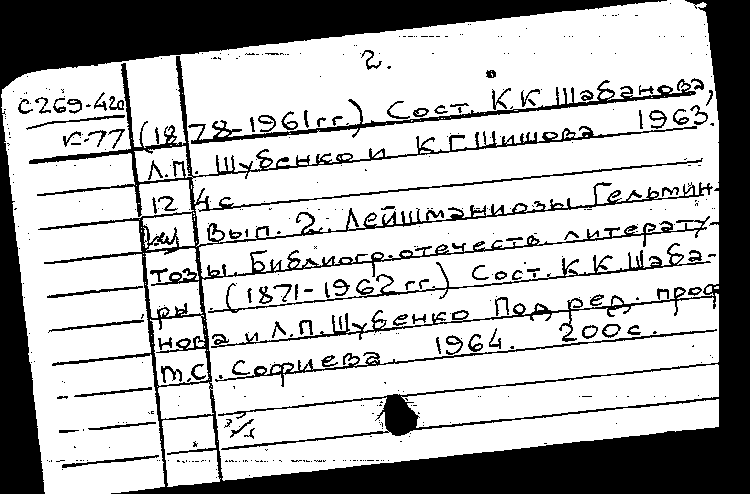 2.
С269-420
К-77 (1878-1961гг.). Сост. К.К. Шабанова,
Л.П. Шубенко и К.Г. Шишова. 1963.
124с.
Вып. 2. Лейшманиозы. Гельмин-
тозы. Библиогр. отечеств. литерату-
ры. (1871-1962 гг.) Сост. К.К. Шаба-
нова и Л.П. Шубенко. Под ред. проф.
М.С. Софиева. 1964. 200с.